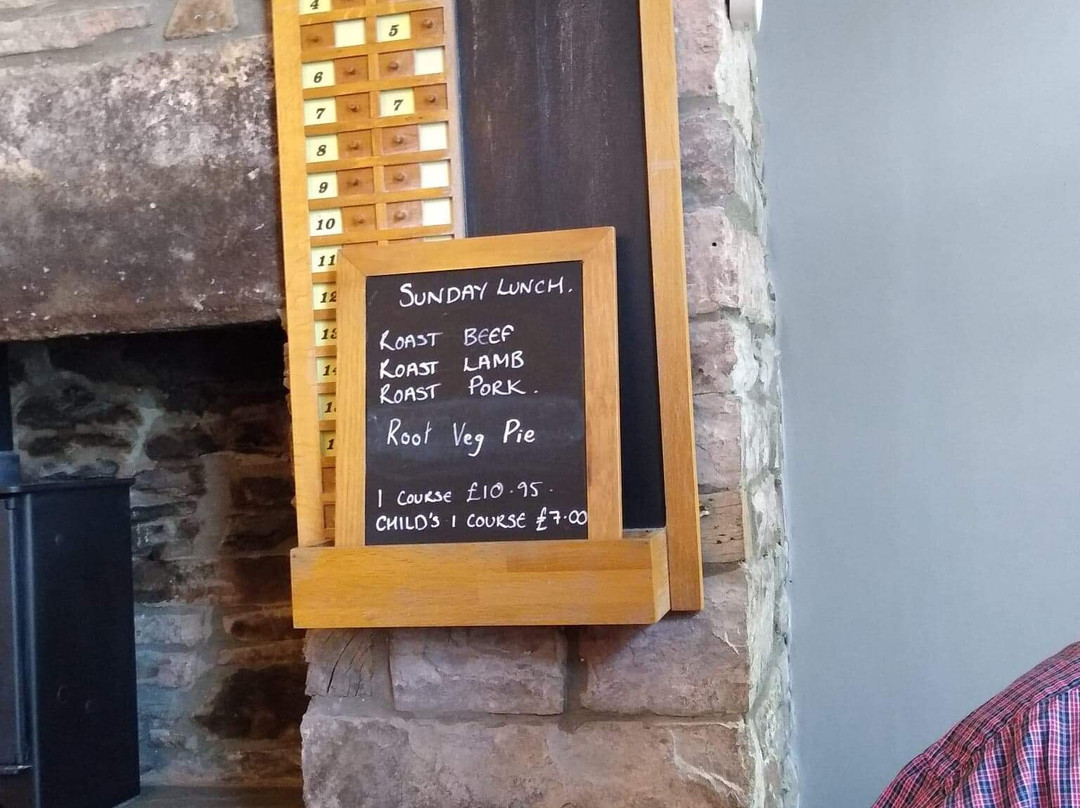 4
5
6
7 7
8
9
10
11
12
13
14
SUNDAY LUNCH.
ROAST BEEF
ROAST LAMB
ROAST PORK.
Root Veg Pie
1 COURSE £10.95.
CHILD'S 1 COURSE £7.00